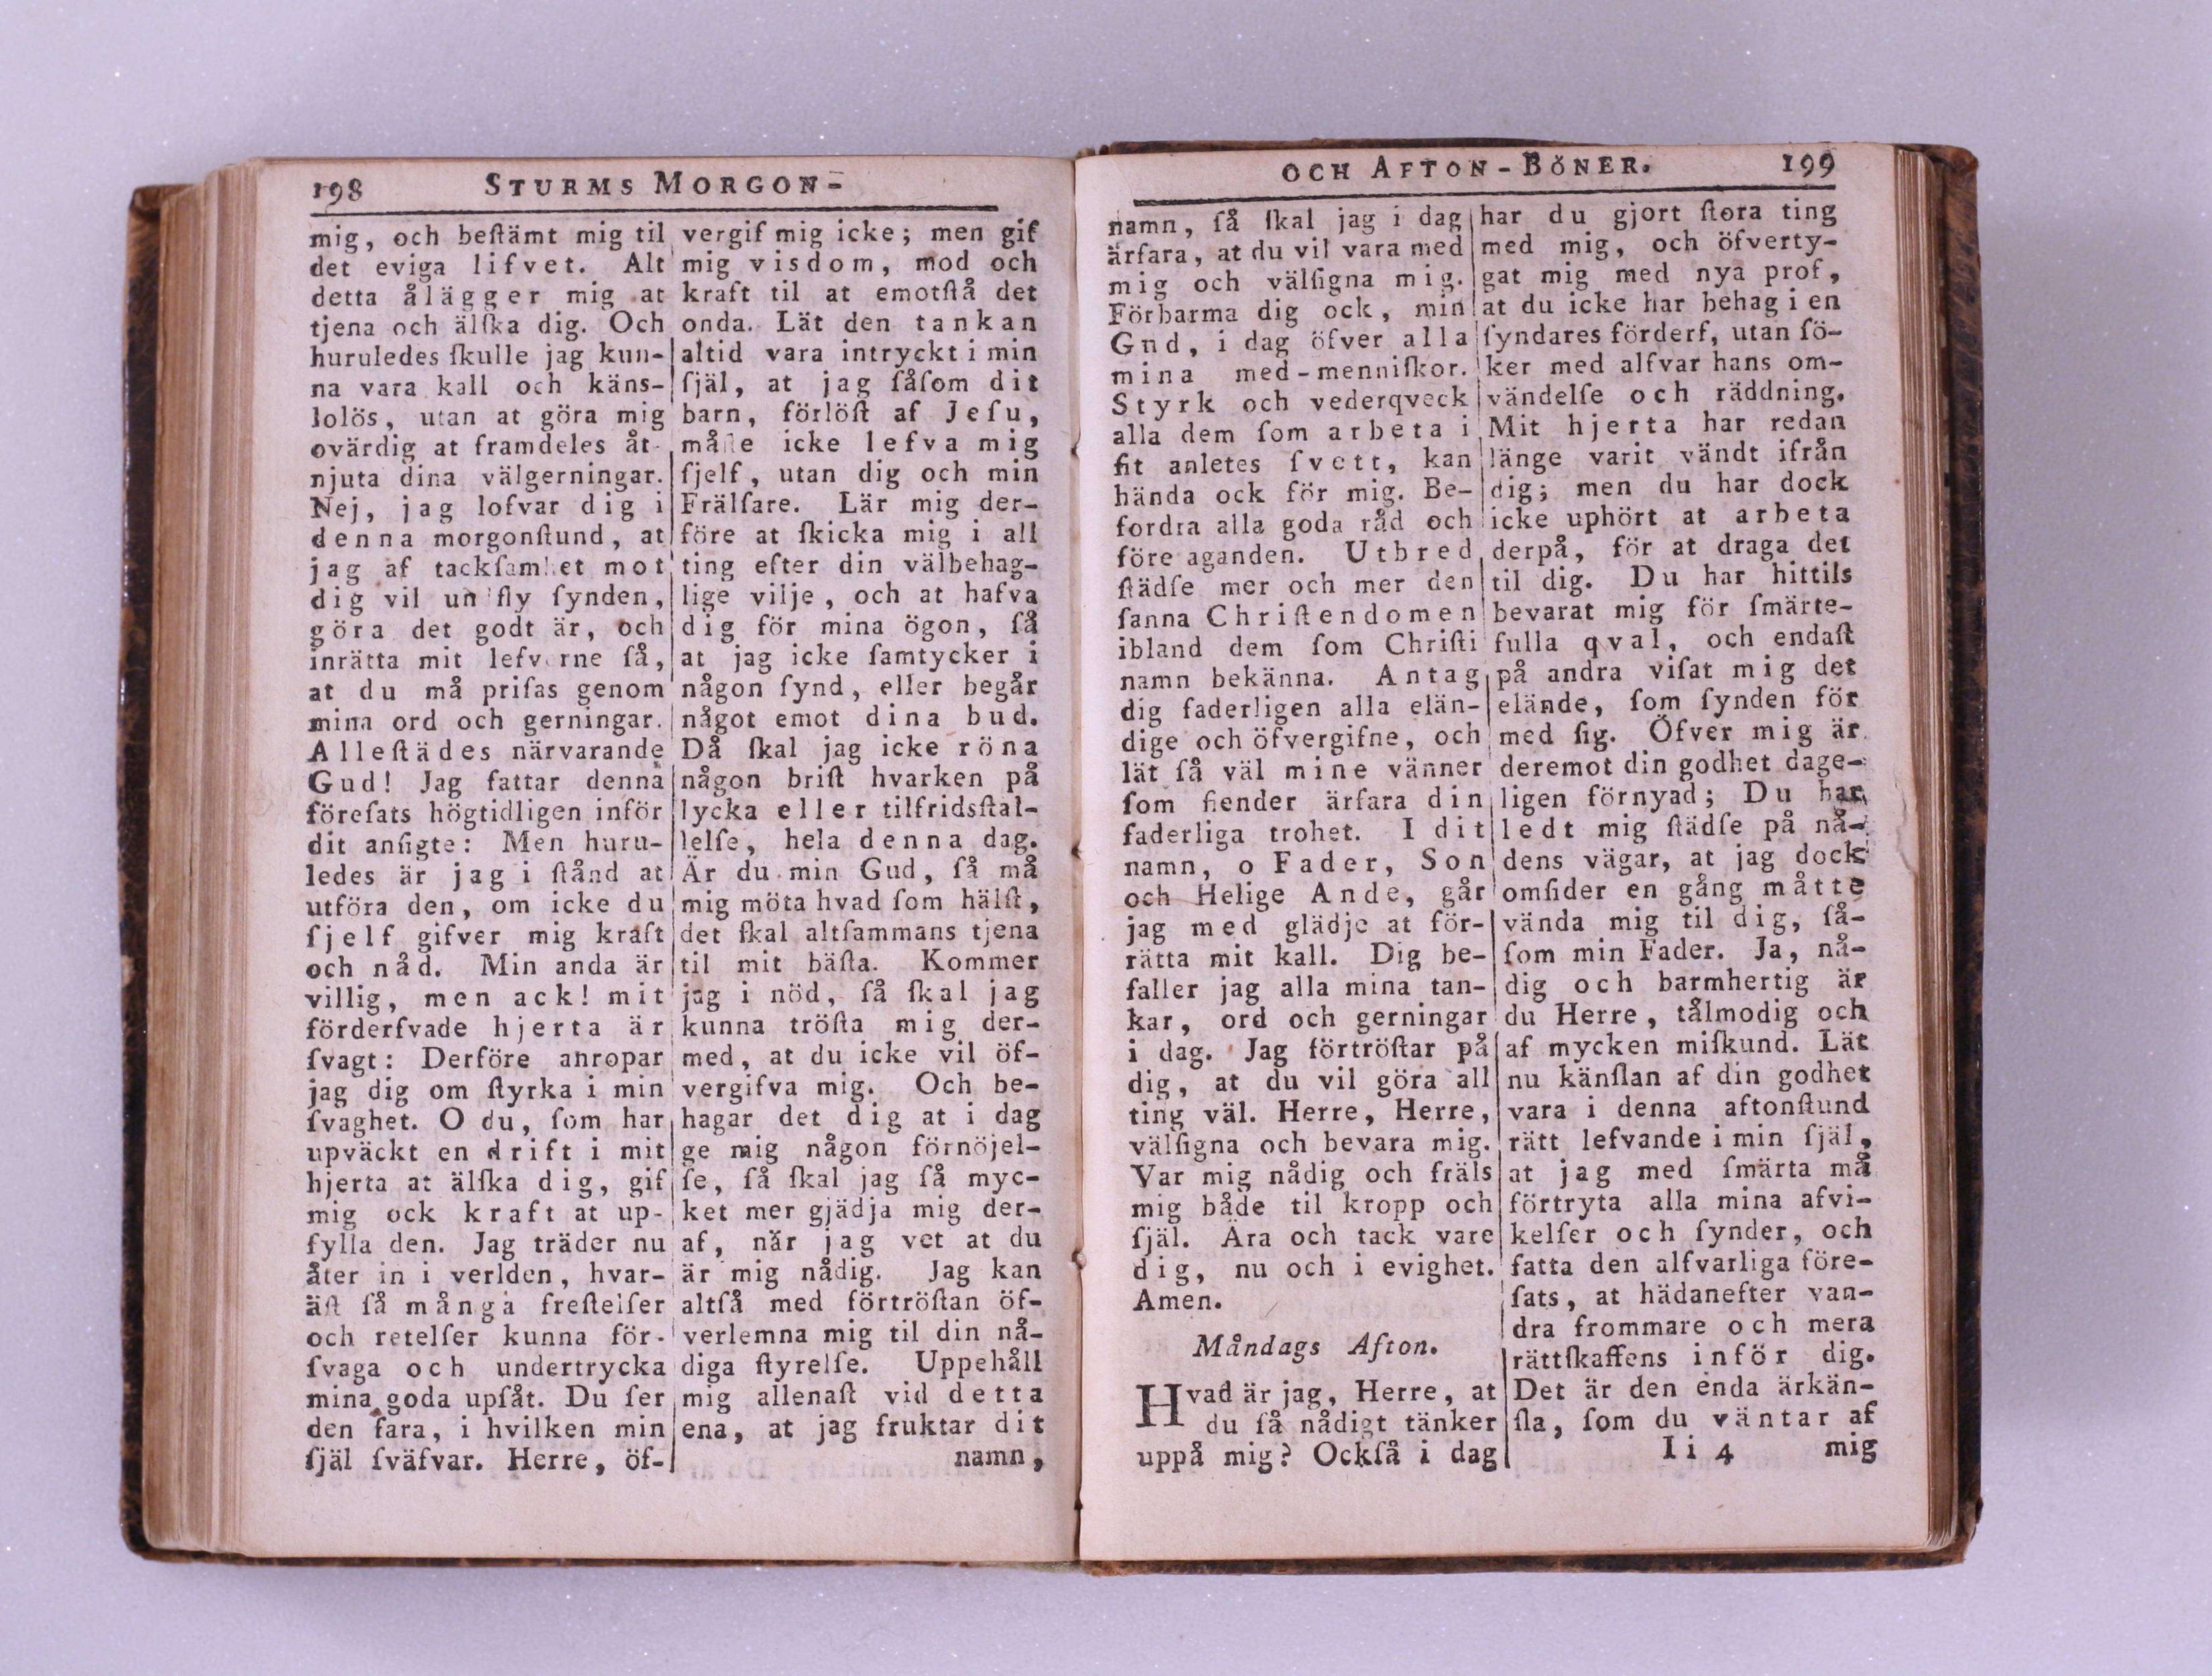 198 STURMS MORGON-
mig, och beſtämt mig til
det eviga lifvet. Alt
detta ålägger mig at
tjena och älſka dig. Och
huruledes ſkulle jag kun-
na vara kall och käns-
lolös, utan at göra mig
ovärdig at framdeles åt-
njuta dina välgerningar.
Nej, jag lofvar dig i
denna morgonſtund, at
jag af tackſamhet mot
dig vil unfly ſynden,
göra det godt är, och
inrätta mit lefverne ſå,
at du må priſas genom
mina ord och gerningar.
Alleſtädes närvarande
Gud! Jag fattar denna
föreſats högtidligen inför
dit anſigte: Men huru-
ledes är jag i ſtånd at
utföra den, om icke du
ſjelf gifver mig kraft
och nåd. Min anda är
villig, men ack! mit
förderfvade hjerta är
ſvagt: Derföre anropar
jag dig om ſtyrka i min
ſvaghet. O du, ſom har
upväckt en drift i mit
hjerta at älſka dig, gif
mig ock kraft at up-
fylla den. Jag träder nu
åter in i verlden, hvar-
äſt ſå många freſtelſer
och retelſer kunna för-
ſvaga och undertrycka
mina goda upſåt. Du ſer
den fara, i hvilken min
ſjäl ſväfvar. Herre, öf-
vergif mig icke; men gif
mig visdom, mod och
kraft til at emotſtå det
onda. Lät den tankan
altid vara intryckt i min
ſjäl, at jag ſåſom dit
barn, förlöſt af Jeſu,
måſte icke lefva mig
ſjelf, utan dig och min
Frälſare. Lär mig der-
före at ſkicka mig i all
ting efter din välbehag-
lige vilje, och at hafva
dig för mina ögon, ſå
at jag icke ſamtycker i
någon ſynd, eller begår
något emot dina bud.
Då ſkal jag icke röna
någon briſt hvarken på
lycka eller tilfridsſtäl-
lelſe, hela denna dag.
Är du min Gud, ſå må
mig möta hvad ſom hälſt,
det ſkal altſammans tjena
til mit bäſta. Kommer
jag i nöd, ſå ſkal jag
kunna tröſta mig der-
med, at du icke vil öf-
vergifva mig. Och be-
hagar det dig at i dag
ge mig någon förnöjel-
ſe, ſå ſkal jag ſå myc-
ket mer gjädja mig der-
af, när jag vet at du
är mig nådig. Jag kan
altſå med förtröſtan öf-
verlemna mig til din nå-
diga ſtyrelſe. Uppehåll
mig allenaſt vid detta
ena, at jag fruktar dit
namn,
OCH AFTON-BÖNER. 199
namn, ſå ſkal jag i dag
ärfara, at du vil vara med
mig och välſigna mig.
Förbarma dig ock, min
Gnd, i dag öfver alla
mina med-menniſkor.
Styrk och vederqveck
alla dem ſom arbeta i
ſit anletes ſvett, kan
hända ock för mig. Be-
fordra alla goda råd och
före aganden. Utbred
ſtädſe mer och mer den
ſanna Chriſtendomen
ibland dem ſom Chriſti
namn bekänna. Antag
dig faderligen alla elän-
dige och öfvergifne, och
lät ſå väl mine vänner
ſom fiender ärfara din
faderliga trohet. I dit
namn, o Fader, Son
och Helige Ande, går
jag med glädje at för-
rätta mit kall. Dig be-
faller jag alla mina tan-
kar, ord och gerningar
i dag. Jag förtröſtar på
dig, at du vil göra all
ting väl. Herre, Herre,
välſigna och bevara mig.
Var mig nådig och fräls
mig både til kropp och
ſjäl. Ära och tack vare
dig, nu och i evighet.
Amen.
Måndags Afton.
Hvad är jag, Herre, at
du ſå nådigt tänker
uppå mig? Ockſå i dag
har du gjort ſtora ting
med mig, och öfverty-
gat mig med nya prof,
at du icke har behag i en
ſyndares förderf, utan ſö-
ker med alfvar hans om-
vändelſe och räddning.
Mit hjerta har redan
länge varit vändt ifrån
dig; men du har dock
icke uphört at arbeta
derpå, för at draga det
til dig. Du har hittils
bevarat mig för ſmärte-
fulla qval, och endaſt
på andra viſat mig det
elände, ſom ſynden för
med ſig. Öfver mig är
deremot din godhet dage-
ligen förnyad; Du har
ledt mig ſtädſe på nå-
dens vägar, at jag dock
omſider en gång måtte
vända mig til dig, ſå-
ſom min Fader. Ja, nå-
dig och barmhertig är
du Herre, tålmodig och
af mycken miſkund. Lät
nu känſlan af din godhet
vara i denna aftonſtund
rätt lefvande i min ſjäl,
at jag med ſmärta må
förtryta alla mina afvi-
kelſer och ſynder, och
fatta den alfvarliga före-
ſats, at hädanefter van-
dra frommare och mera
rättſkaffens inför dig.
Det är den enda ärkän-
ſla, ſom du väntar af
I i 4 mig